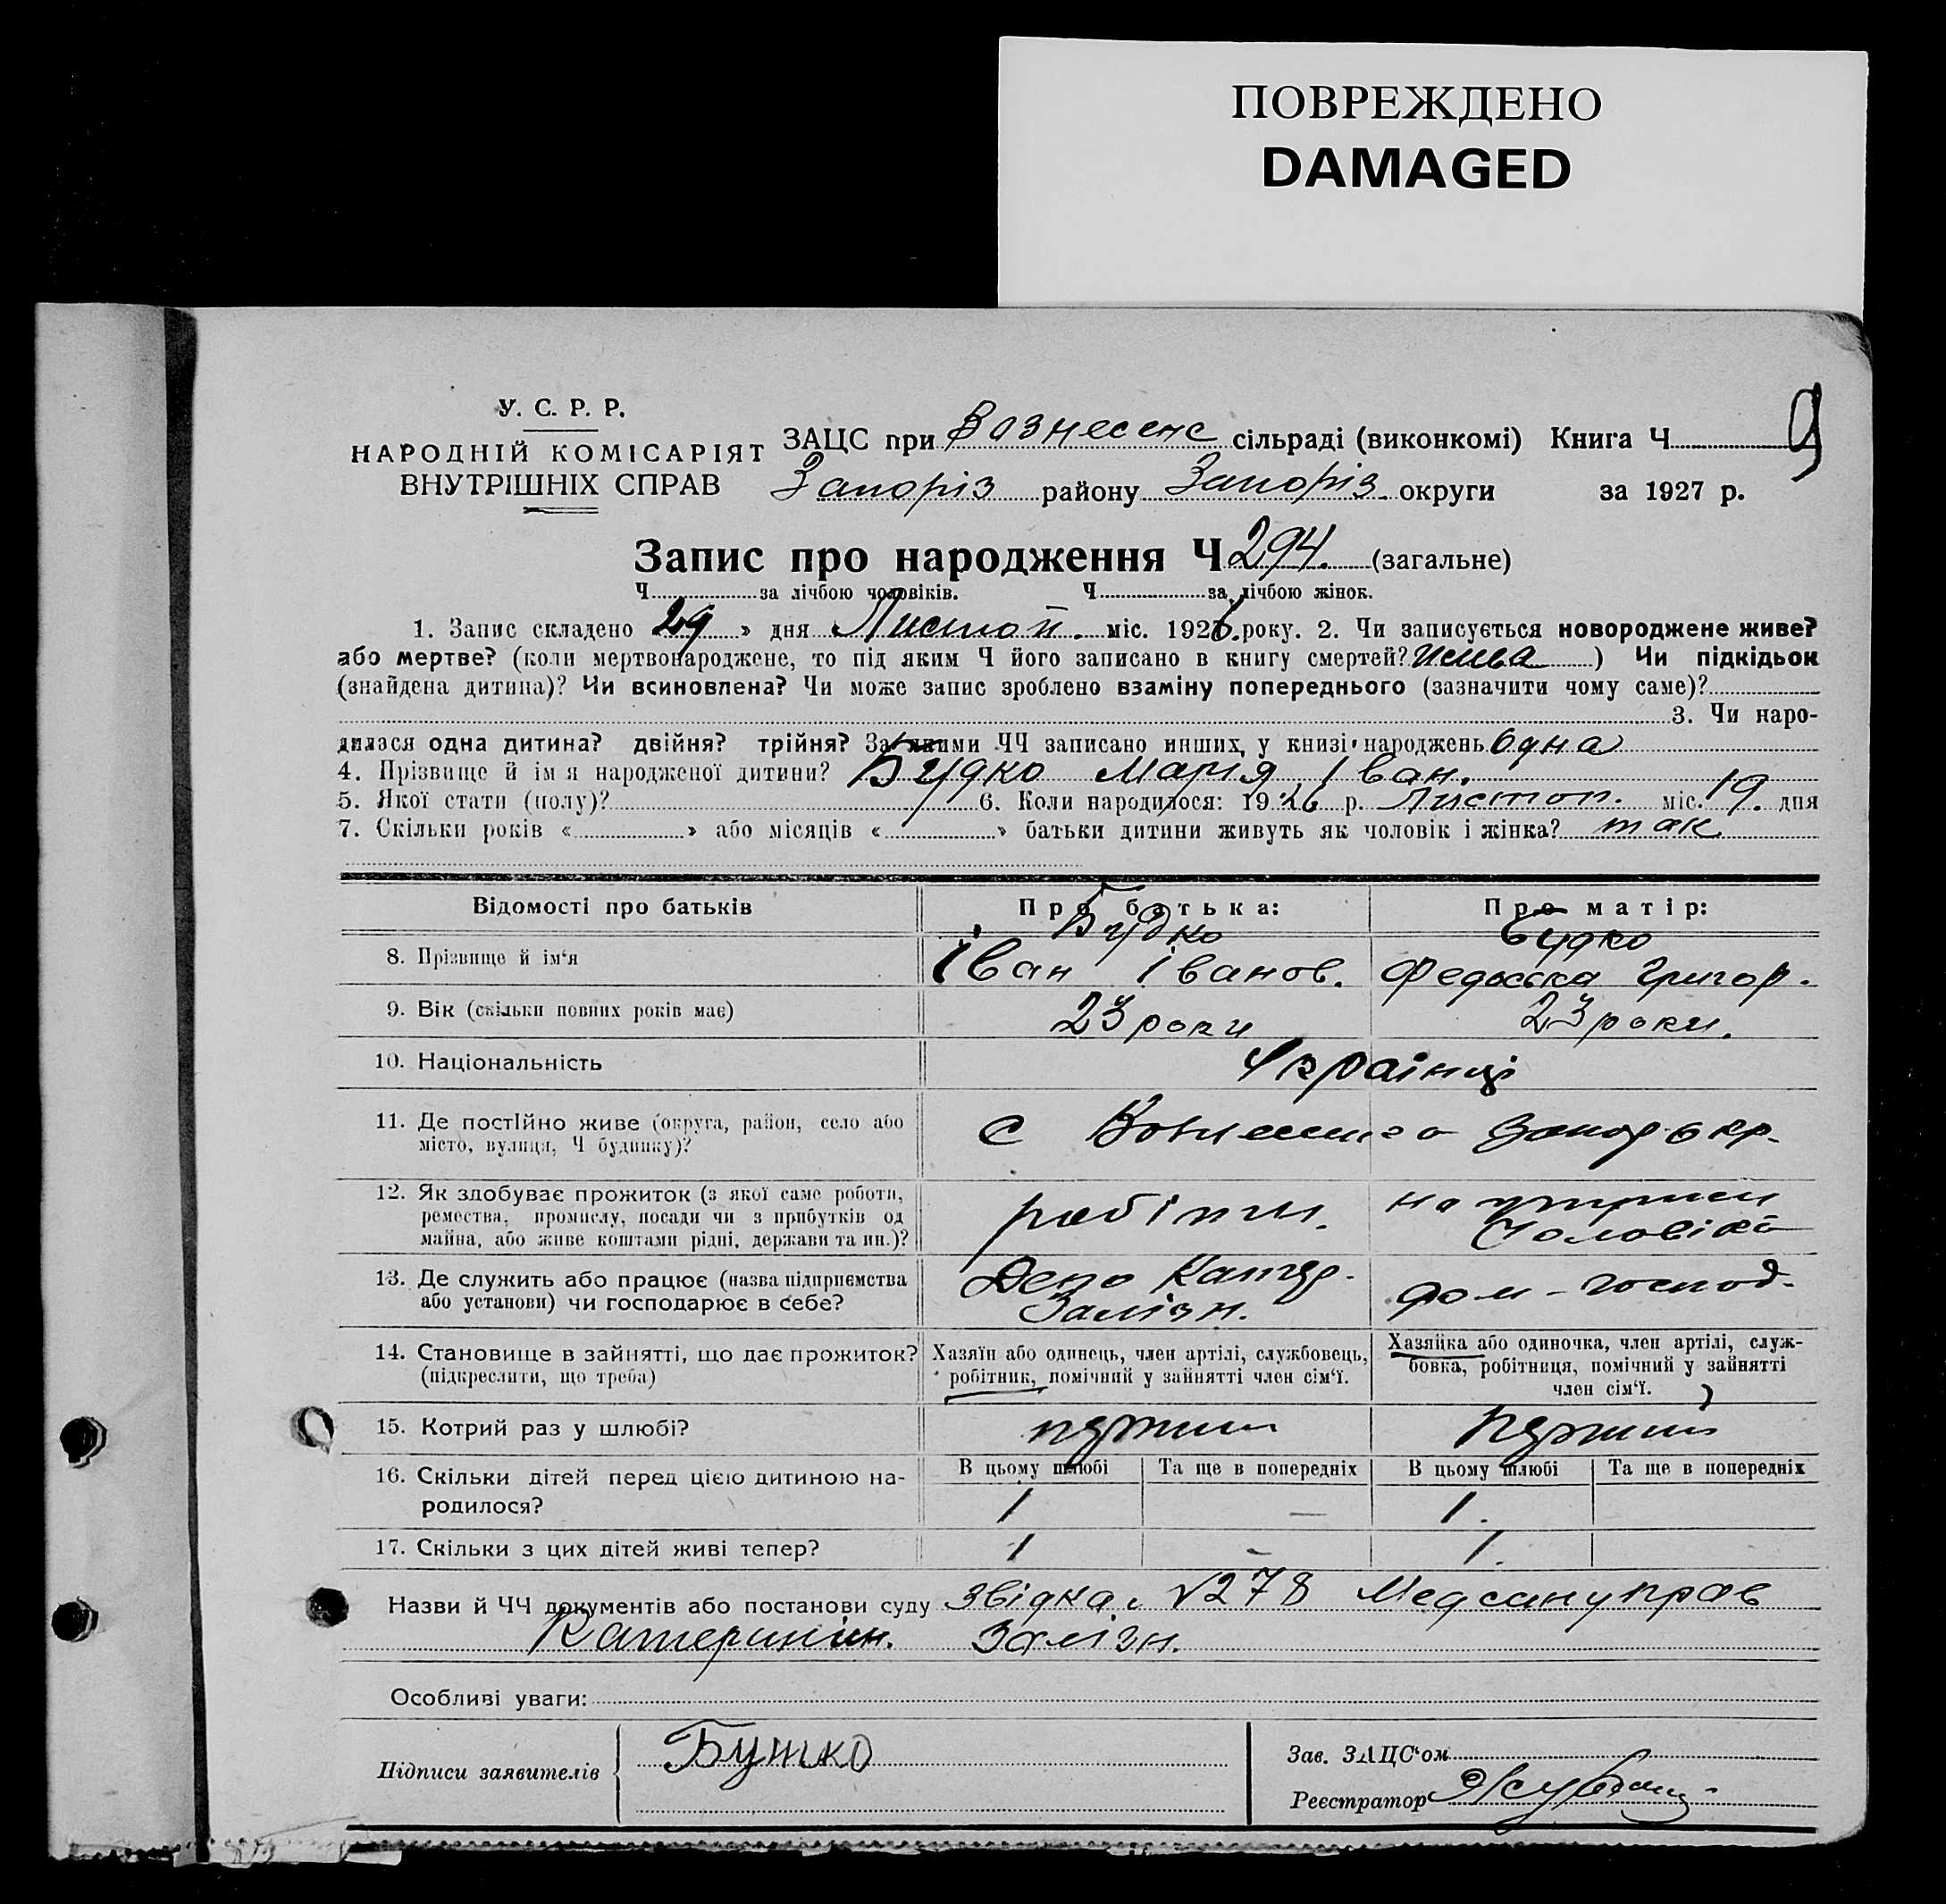 ПОВРЕЖДЕНО
DAMAGED
9
У. С. Р. Р.
НАРОДНІЙ КОМІСАРІЯТ
ВНУТРІШНІХ СПРАВ
ЗАЦС при Вознесенс сільраді (виконкомі) Книга Ч
Запоріз району Запоріз. округи за 1927 р.
Запис про народження Ч 294. (загальне)
Ч за лічбою чоловіків. Ч за лічбою жінок.
1. Запис складено 29 » дня « Листоп. міс. 1926. року. 2. Чи записується новороджене живе?
або мертве? (коли мертвонароджене, то під яким Ч його записано в книгу смертей? ) Чи підкідьок
(знайдена дитина)? Чи всиновлена? Чи може запис зроблено взаміну попереднього (зазначити чому саме)?
3. Чи наро-
дилася одна дитина? двійня? трійня? За якими ЧЧ записано инших, у книзі народжень одна
4. Прізвище й імя народженої дитини? Будко Марія Іван.
5. Якої стати (полу)? 6. Коли народилося: 1926 р. Листоп. міс. 19. дня
7. Скільки років « » або місяців « » батьки дитини живуть як чоловік і жінка? так
Відомості про батьків Про батька: Про матір:
Будко Будко
8. Прізвище й ім‘я Іван Іванов. Федоська Григор.
9. Вік (скільки повних років має) 23 роки 23 роки.
10. Національність Українці
11. Де постійно живе (округа, район, село або
місто, вулиця, Ч будинку)? с
12. Як здобуває прожиток (з якої саме роботи,
ремества, промислу, посади чи з прибутків од
майна, або живе коштами рідні, держави та ин.)? робітн. на чоловіка
13. Де служить або працює (назва підприємства
або установи) чи господарює в себе? Депо Катер. Залізн. дом-господ.
14. Становище в зайнятті, що дає прожиток?
(підкреслити, що треба)
Хазяїн або одинець, член артілі, службовець,
робітник, помічний у зайнятті член сім‘ї.
Хазяйка або одиночка, член артілі, служ-
бовка, робітниця, помічний у зайнятті
член сім‘ї.
15. Котрий раз у шлюбі? перший перший
16. Скільки дітей перед цією дитиною на-
родилося?
В цьому шлюбі Та ще в попередніх В цьому шлюбі Та ще в попередніх
1 — 1.
17. Скільки з цих дітей живі тепер? 1 - 1.
Назви й ЧЧ документів або постанови суду звідка. №278 Медсануправ
Катеринін. Залізн.
Особливі уваги:
Підписи заявителів Бутко
Зав. ЗАЦС‘ом
Реєстратор